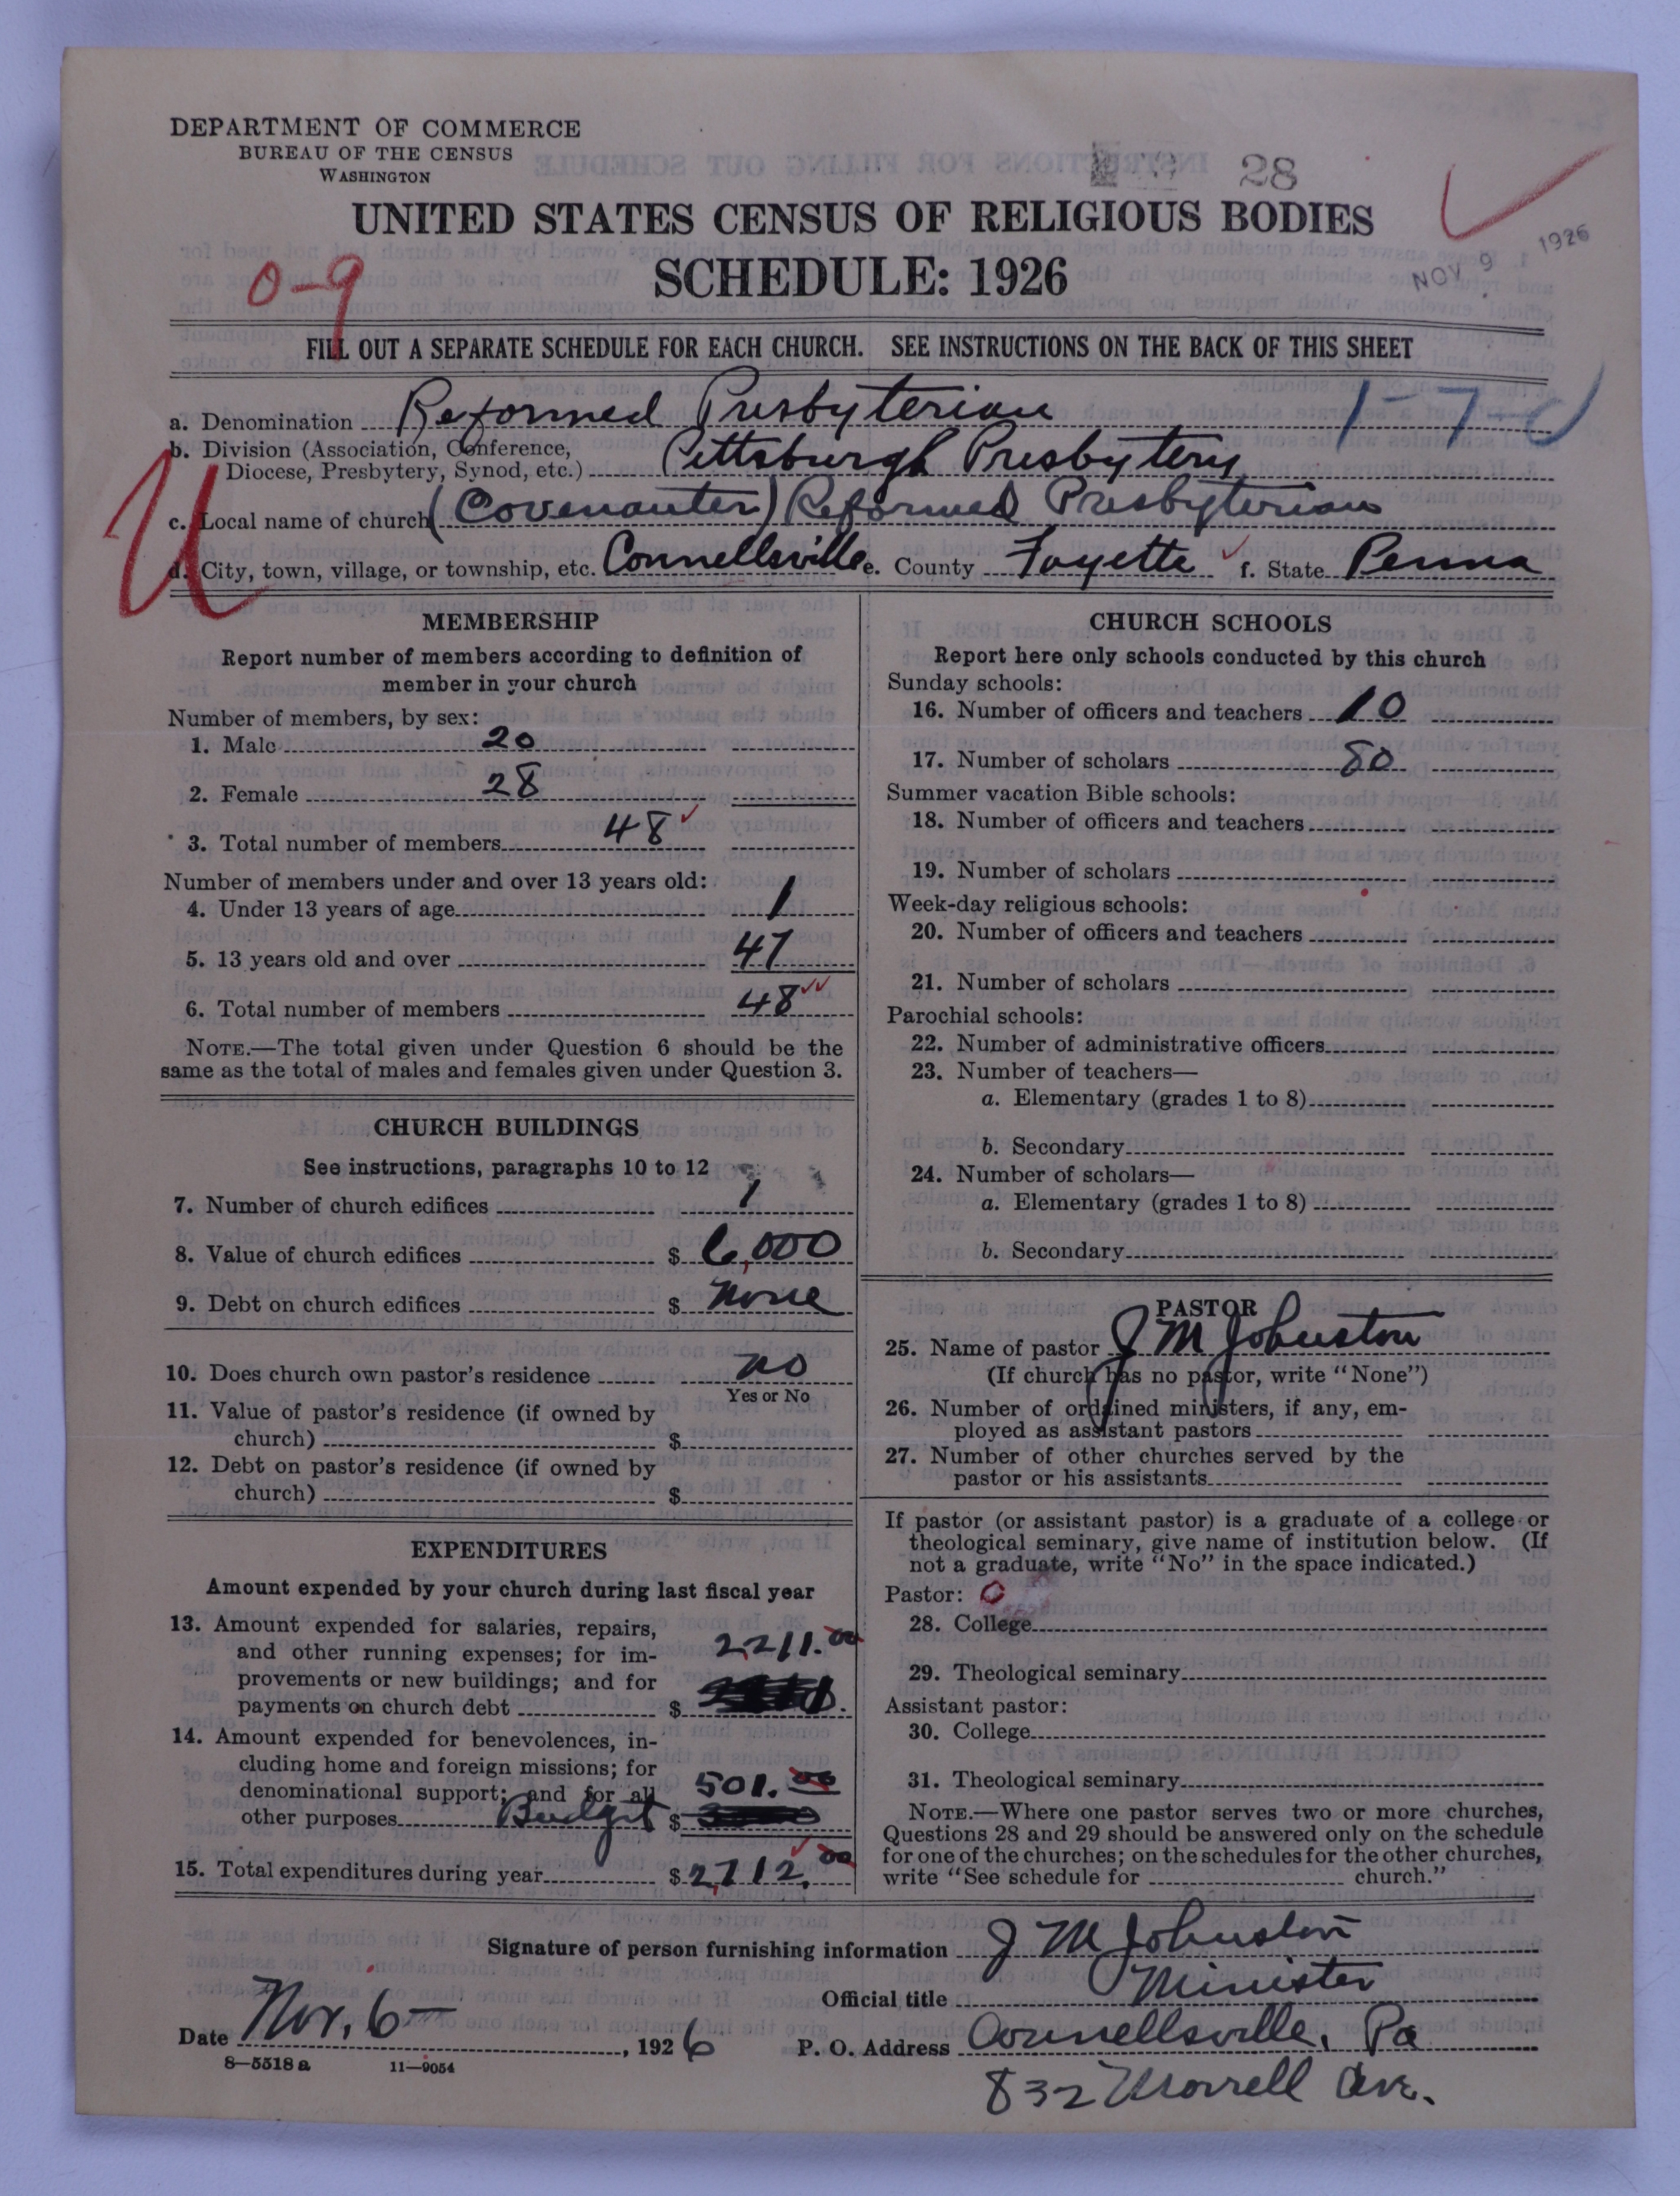 DEPARTMENT OF COMMERCE
BUREAU OF THE CENSUS
WASHINGTON
28
UNITED STATES CENSUS OF RELIGIOUS BODIES
SCHEDULE: 1926
NOV 9 1926
0-9
FILL OUT A SEPARATE SCHEDULE FOR EACH CHURCH. SEE INSTRUCTIONS ON THE BACK OF THIS SHEET
a. Denomination Reformed Presbyterian 1-7-0
b. Division (Association, Conference,
Diocese, Presbytery, Synod, etc.) Pittsburgh Presbytery
c. Local name of church (Covenanter) Reformed Presbyterian
d. City, town, village, or township, etc. Connellsville e. County Fayette f. State Penna
U
MEMBERSHIP
Report number of members according to definition of
member in your church
Number of members, by sex:
1. Male 20
2. Female 28
3. Total number of members 48
Number of members under and over 13 years old:
4. Under 13 years of age 1
5. 13 years old and over 47
6. Total number of members 48
NOTE.—The total given under Question 6 should be the
same as the total of males and females given under Question 3.
CHURCH BUILDINGS
See instructions, paragraphs 10 to 12
7. Number of church edifices 1
8. Value of church edifices $ 6,000
9. Debt on church edifices $ None
10. Does church own pastor's residence no
Yes or No
11. Value of pastor's residence (if owned by
church) $
12. Debt on pastor's residence (if owned by
church) $
EXPENDITURES
Amount expended by your church during last fiscal year
13. Amount expended for salaries, repairs,
and other running expenses; for im-
provements or new buildings; and for
payments on church debt $ 2,211.00
14. Amount expended for benevolences, in-
cluding home and foreign missions; for
denominational support; and for all
other purposes Budget $ 501.00
15. Total expenditures during year $ 2,712.00
CHURCH SCHOOLS
Report here only schools conducted by this church
Sunday schools:
16. Number of officers and teachers 10
17. Number of scholars 80
Summer vacation Bible schools:
18. Number of officers and teachers
19. Number of scholars
Week-day religious schools:
20. Number of officers and teachers
21. Number of scholars
Parochial schools:
22. Number of administrative officers
23. Number of teachers—
a. Elementary (grades 1 to 8)
b. Secondary
24. Number of scholars—
a. Elementary (grades 1 to 8)
b. Secondary
PASTOR
25. Name of pastor J M Johnston
(If church has no pastor, write "None")
26. Number of ordained ministers, if any, em-
ployed as assistant pastors
27. Number of other churches served by the
pastor or his assistants
If pastor (or assistant pastor) is a graduate of a college or
theological seminary, give name of institution below. (If
not a graduate, write "No" in the space indicated.)
Pastor:
28. College
29. Theological seminary
Assistant pastor:
30. College
31. Theological seminary
NOTE.—Where one pastor serves two or more churches,
Questions 28 and 29 should be answered only on the schedule
for one of the churches; on the schedules for the other churches,
write "See schedule for church."
Signature of person furnishing information J M Johnston
Official title Minister
Date Nov. 6, 1926 P. O. Address Connellsville, Pa
8—5518 a 11—9054
832 Morrell Ave.